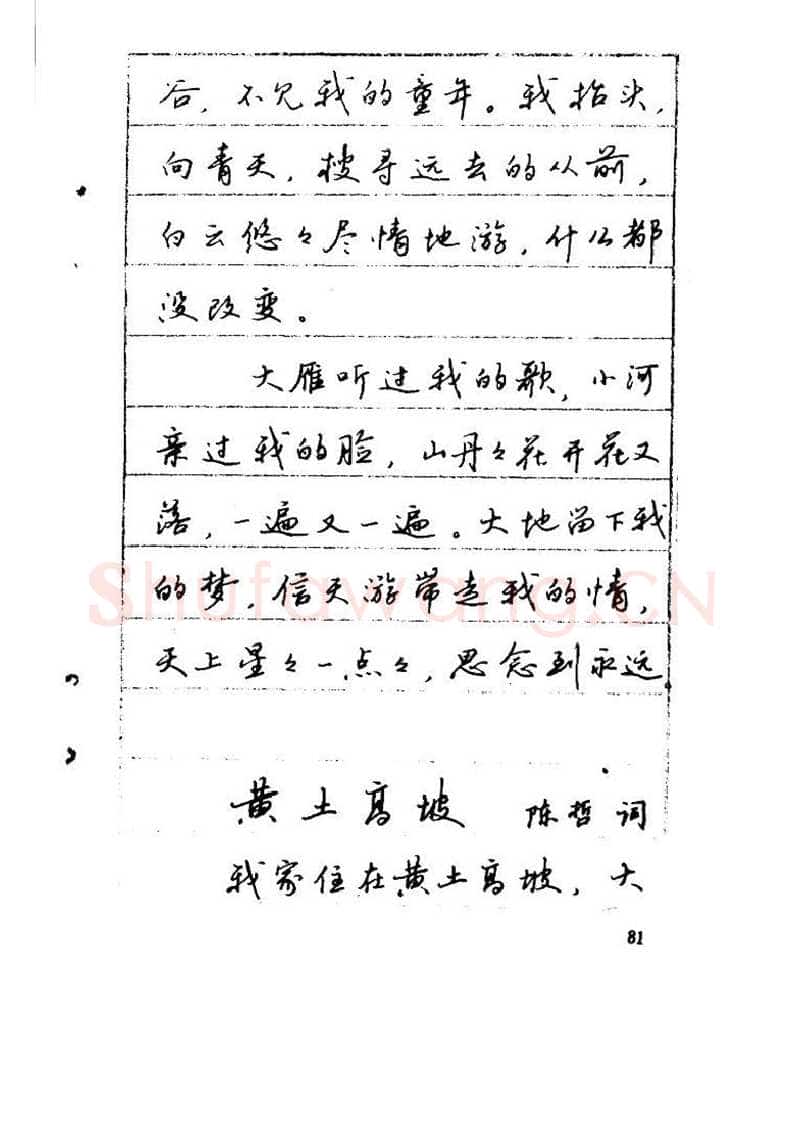 后，不见我的童年。我抬头，
向青天，搜寻远去的从前，
白云悠々尽情地游，什么都
没改变。
大雁听过我的歌，小河
亲过我的脸，山丹々花开花又
落，一遍又一遍。大地留下我
的梦，信天游带走我的情，
天上星々一点々，思念到永远
黄土高坡 陈哲 词
我家住在黄土高坡，大
81
Shufawang.CN